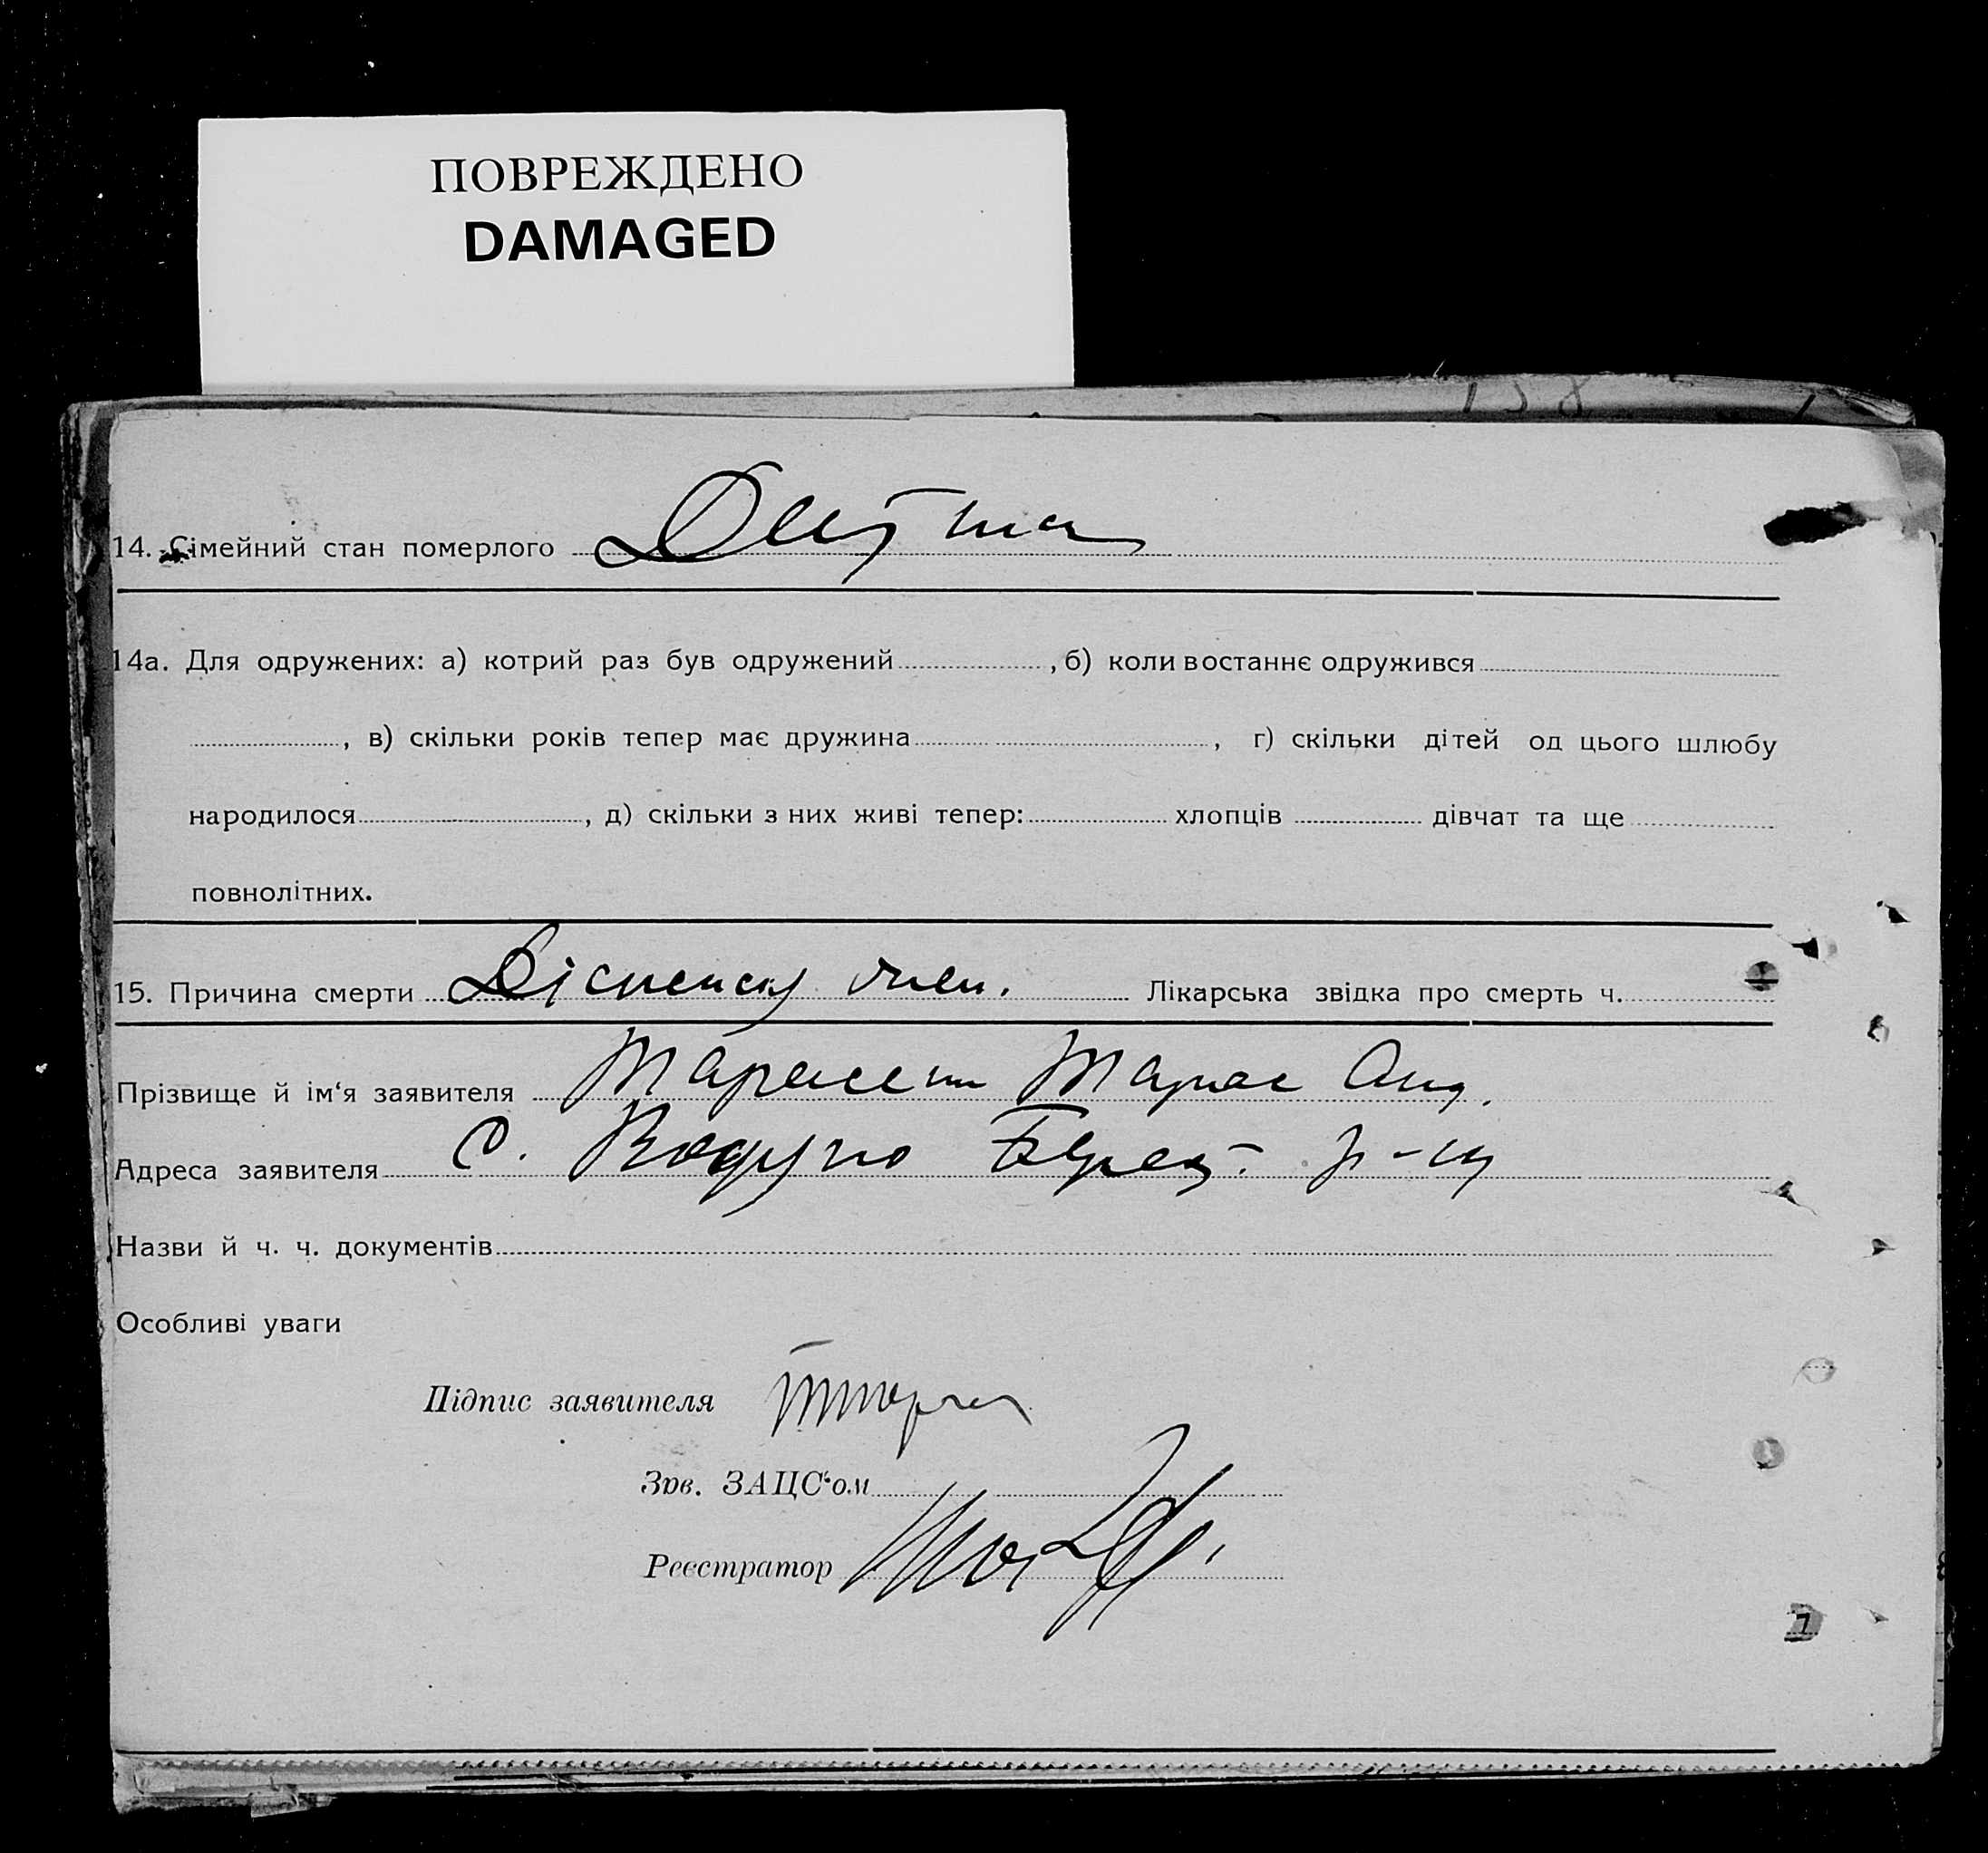 ПОВРЕЖДЕНО
DAMAGED
138
14. Сімейний стан померлого Дитина
14а. Для одружених: а) котрий раз був одружений , б) коли востаннє одружився
, в) скільки років тепер має дружина , г) скільки дітей од цього шлюбу
народилося , д) скільки з них живі тепер: хлопців дівчат та ще
повнолітних.
15. Причина смерти Діспенсия Лікарська звідка про смерть ч.
Прізвище й ім‘я заявителя Тарас Анд.
Адреса заявителя с. р-ну
Назви й ч. ч. документів
Особливі уваги
Підпис заявителя
Зав. ЗАЦС‘ом
Реєстратор
7